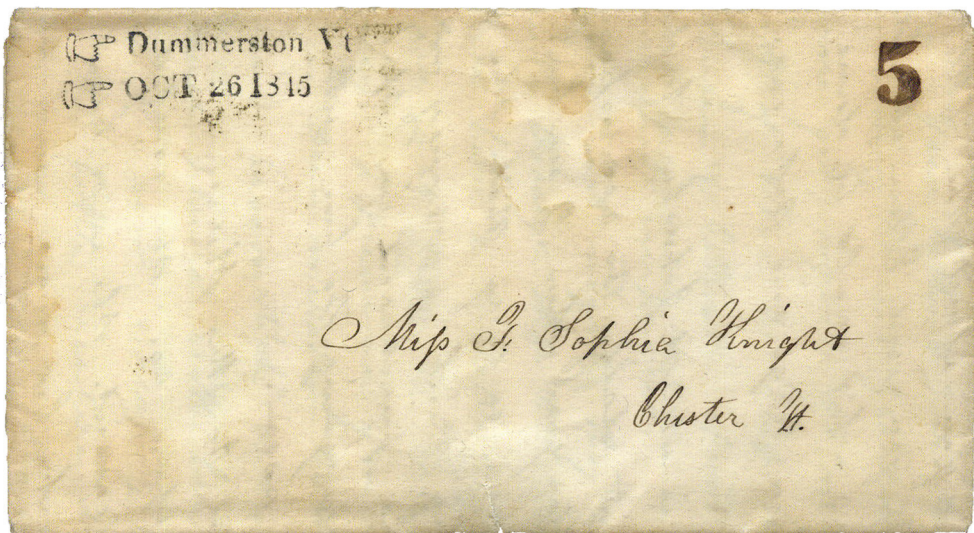 ☞ Dummerston Vt
☞ OCT 26 1845
5
Miſs F. Sophia Knight
Chester Vt.